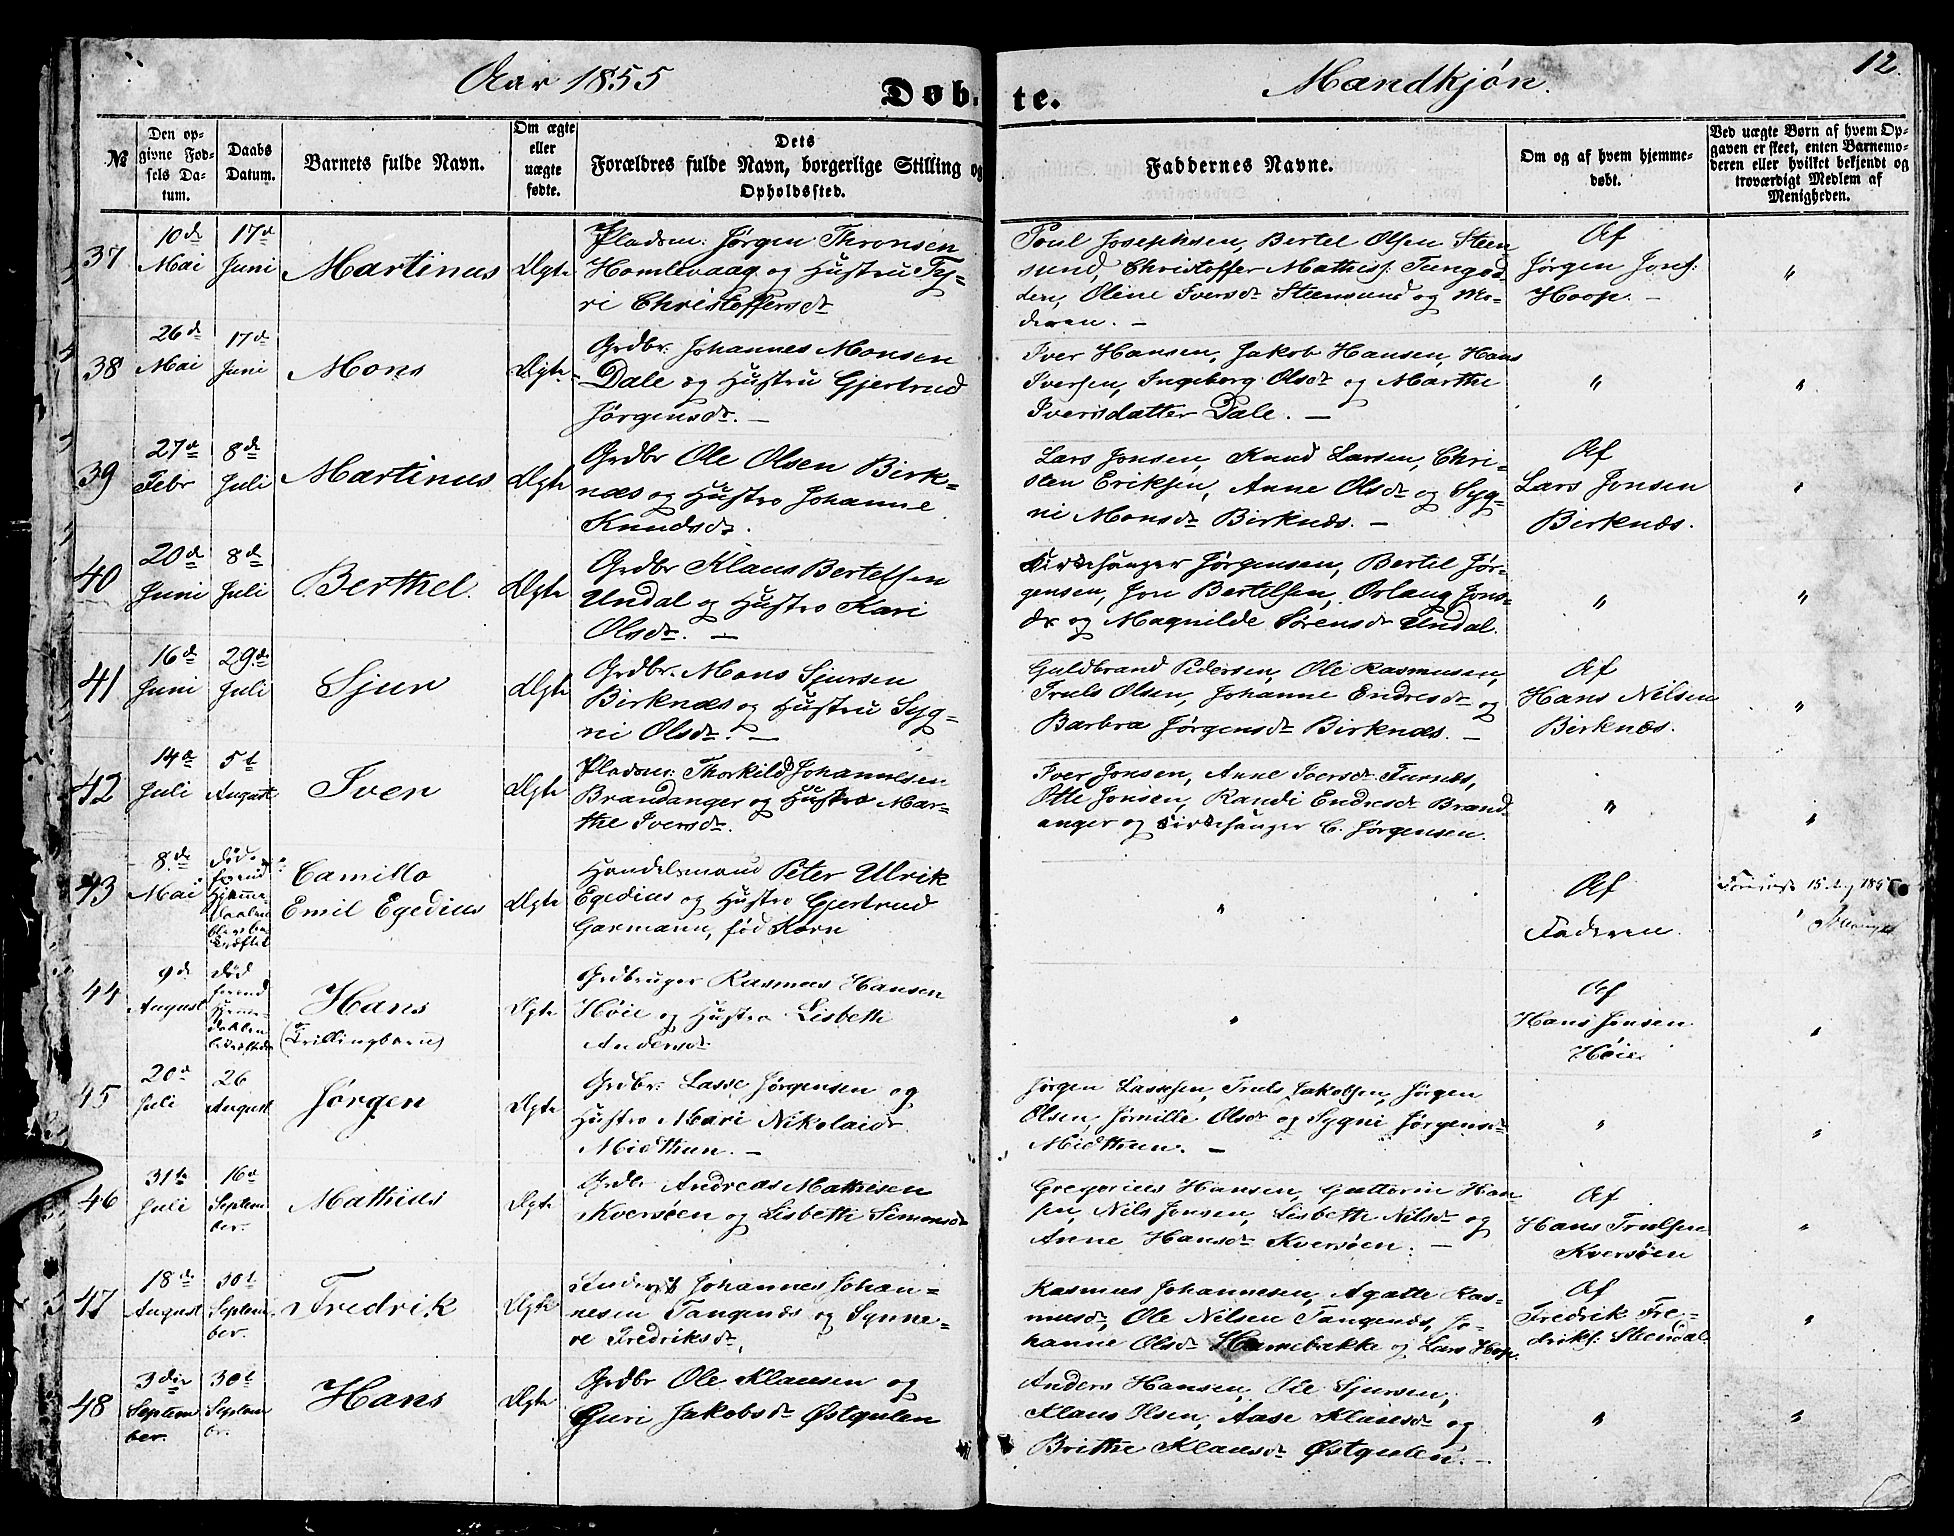 Aar 1855
Døb-te.
Mandkjøn.
12.
№
Den opgivne Fødsels Datum.
Daabs Datum.
Barnets fulde Navn.
Om ægte eller uægte fødte.
Dets Forældres fulde Navn, borgerlige Stilling og Opholdssted.
Faddernes Navne.
Om og af hvem hjemmedøbt.
Ved uægte Børn af hvem Opgaven er skeet, enten Barnemoderen eller hvilket bekjendt og troværdigt Medlem af Menigheden.
37
10de Mai
17de Juni
Martinus
Ægte
Pladsm: Jørgen Thronsen
Homlevaag og Hustru Sy-
ri Christoffersdr
Poul Josephsen, Bertel Olsen Steen
sund, Christoffer Mathiss: Tungod
den, Oline Iversdr Steensund og Mo-
deren. —
Af
Jørgen Jons:
Hoop. —
"
38
26de Mai
17de Juni
Mons
Ægte
Grdbr: Johannes Monsen
Dale og Hustru Gjertrud
Jørgensdr. —
Iver Hansen, Jakob Hansen, Hans
Iversen, Ingeborg Olsdr og Marthe
Iversdatter Dale. —
"
"
39
27de Febr
8de Juli
Martinus
Ægte
Grdbr Ole Olsen Birk-
næs og Hustro Johanne
Knudsdr.
Lars Jonsen, Knud Larsen, Chri-
sten Eriksen, Anne Olsdr og Syg-
ni Monsdr Birknæs. —
Af
Lars Jonsen
Birknæs.
"
40
20de Juni
8de Juli
Berthel.
Ægte
Grdbr Klaus Bertelsen
Undal og Hustro Kari
Olsdr. —
Kirkesanger Jørgensen, Bertel Jør-
gensen, Jon Bertelsen, Orlaug Jons-
dr og Magnilde Sørensdr Undal.
"
"
41
16de Juni
29de Juli
Sjur
Ægte
Grdbr. Mons Sjursen
Birknæs og Hustru Syg-
ni Olsdr. —
Guldbrand Pedersen, Ole Rasmusen,
Truls Olsen, Johanne Endresdr og
Barbra Jørgensdr Birknæs. —
Af
Hans Nilsen
Birknæs.
"
42
14de Juli
5t August
Iver
Ægte
Pladsm: Thorkild Johannesen
Brandanger og Hustro Mar-
the Iversdr.
Iver Jonsen, Anne Iversdr Furnæs,
Otte Jonsen, Randi Endresdr Brand
anger og Kirkesanger C. Jørgensen.
"
"
43
8de Mai
Død
forend
Hjemme-
daaben
blev be-
kræftet
Camillo
Emil Egedius
Ægte
Handelsmand Peter Ulrik
Egedius og Hustro Gjertrud
Garmann, fød Korn
"
Af
Faderen.
44
9de August
Død
forend
Hjemme-
daaben
Hans
(Trillingbarn)
Ægte
Grdbruger Rasmus Hansen
Høie og Hustro Lisbeth
Andersdr
"
Af
Hans Jensen
Høie
"
45
20de Juli
26 August
Jørgen
Ægte
Grdbr: Lasse Jørgensen og
Hustro Mari Nikolaidr
Midthun. —
Jørgen Lassesen, Truls Jakobsen, Jørgen
Olsen, Jørnille Olsdr og Sygni Jørgensdr
Midthun. —
"
"
46
31te Juli
16de September.
Mathias
Ægte
Grdbr Andreas Mathisen
Kversøen og Lisbeth Simonsdr
Gregorius Hansen, Guttorm Han
sen, Nils Jensen, Lisbeth Nilsdr og
Anne Hansdr Kversøen. —
Af
Hans Trulsen
Kversøen
"
47
18de August
30t September.
Fredrik
Ægte
Inderst Johannes Johan-
nesen Tangenæs og Synne-
ve Fredriksdr,
Rasmus Johannesen, Agatte Ras-
musdr, Ole Nilsen Tangenæs, Jo-
hanne Olsdr Hannebække og Lars Hop.
Af
Fredrik Fre-
driks: Steendal.
"
48
3die September.
30t Septembr.
Hans
Ægte
Grdbr Ole Klausen og
Guri Jakobsdr Østgulen
Anders Hansen, Ole Sjursen,
Klaus Olsen, Aase Klausdr og
Brithe Klausdr Østgulen. —
"
"